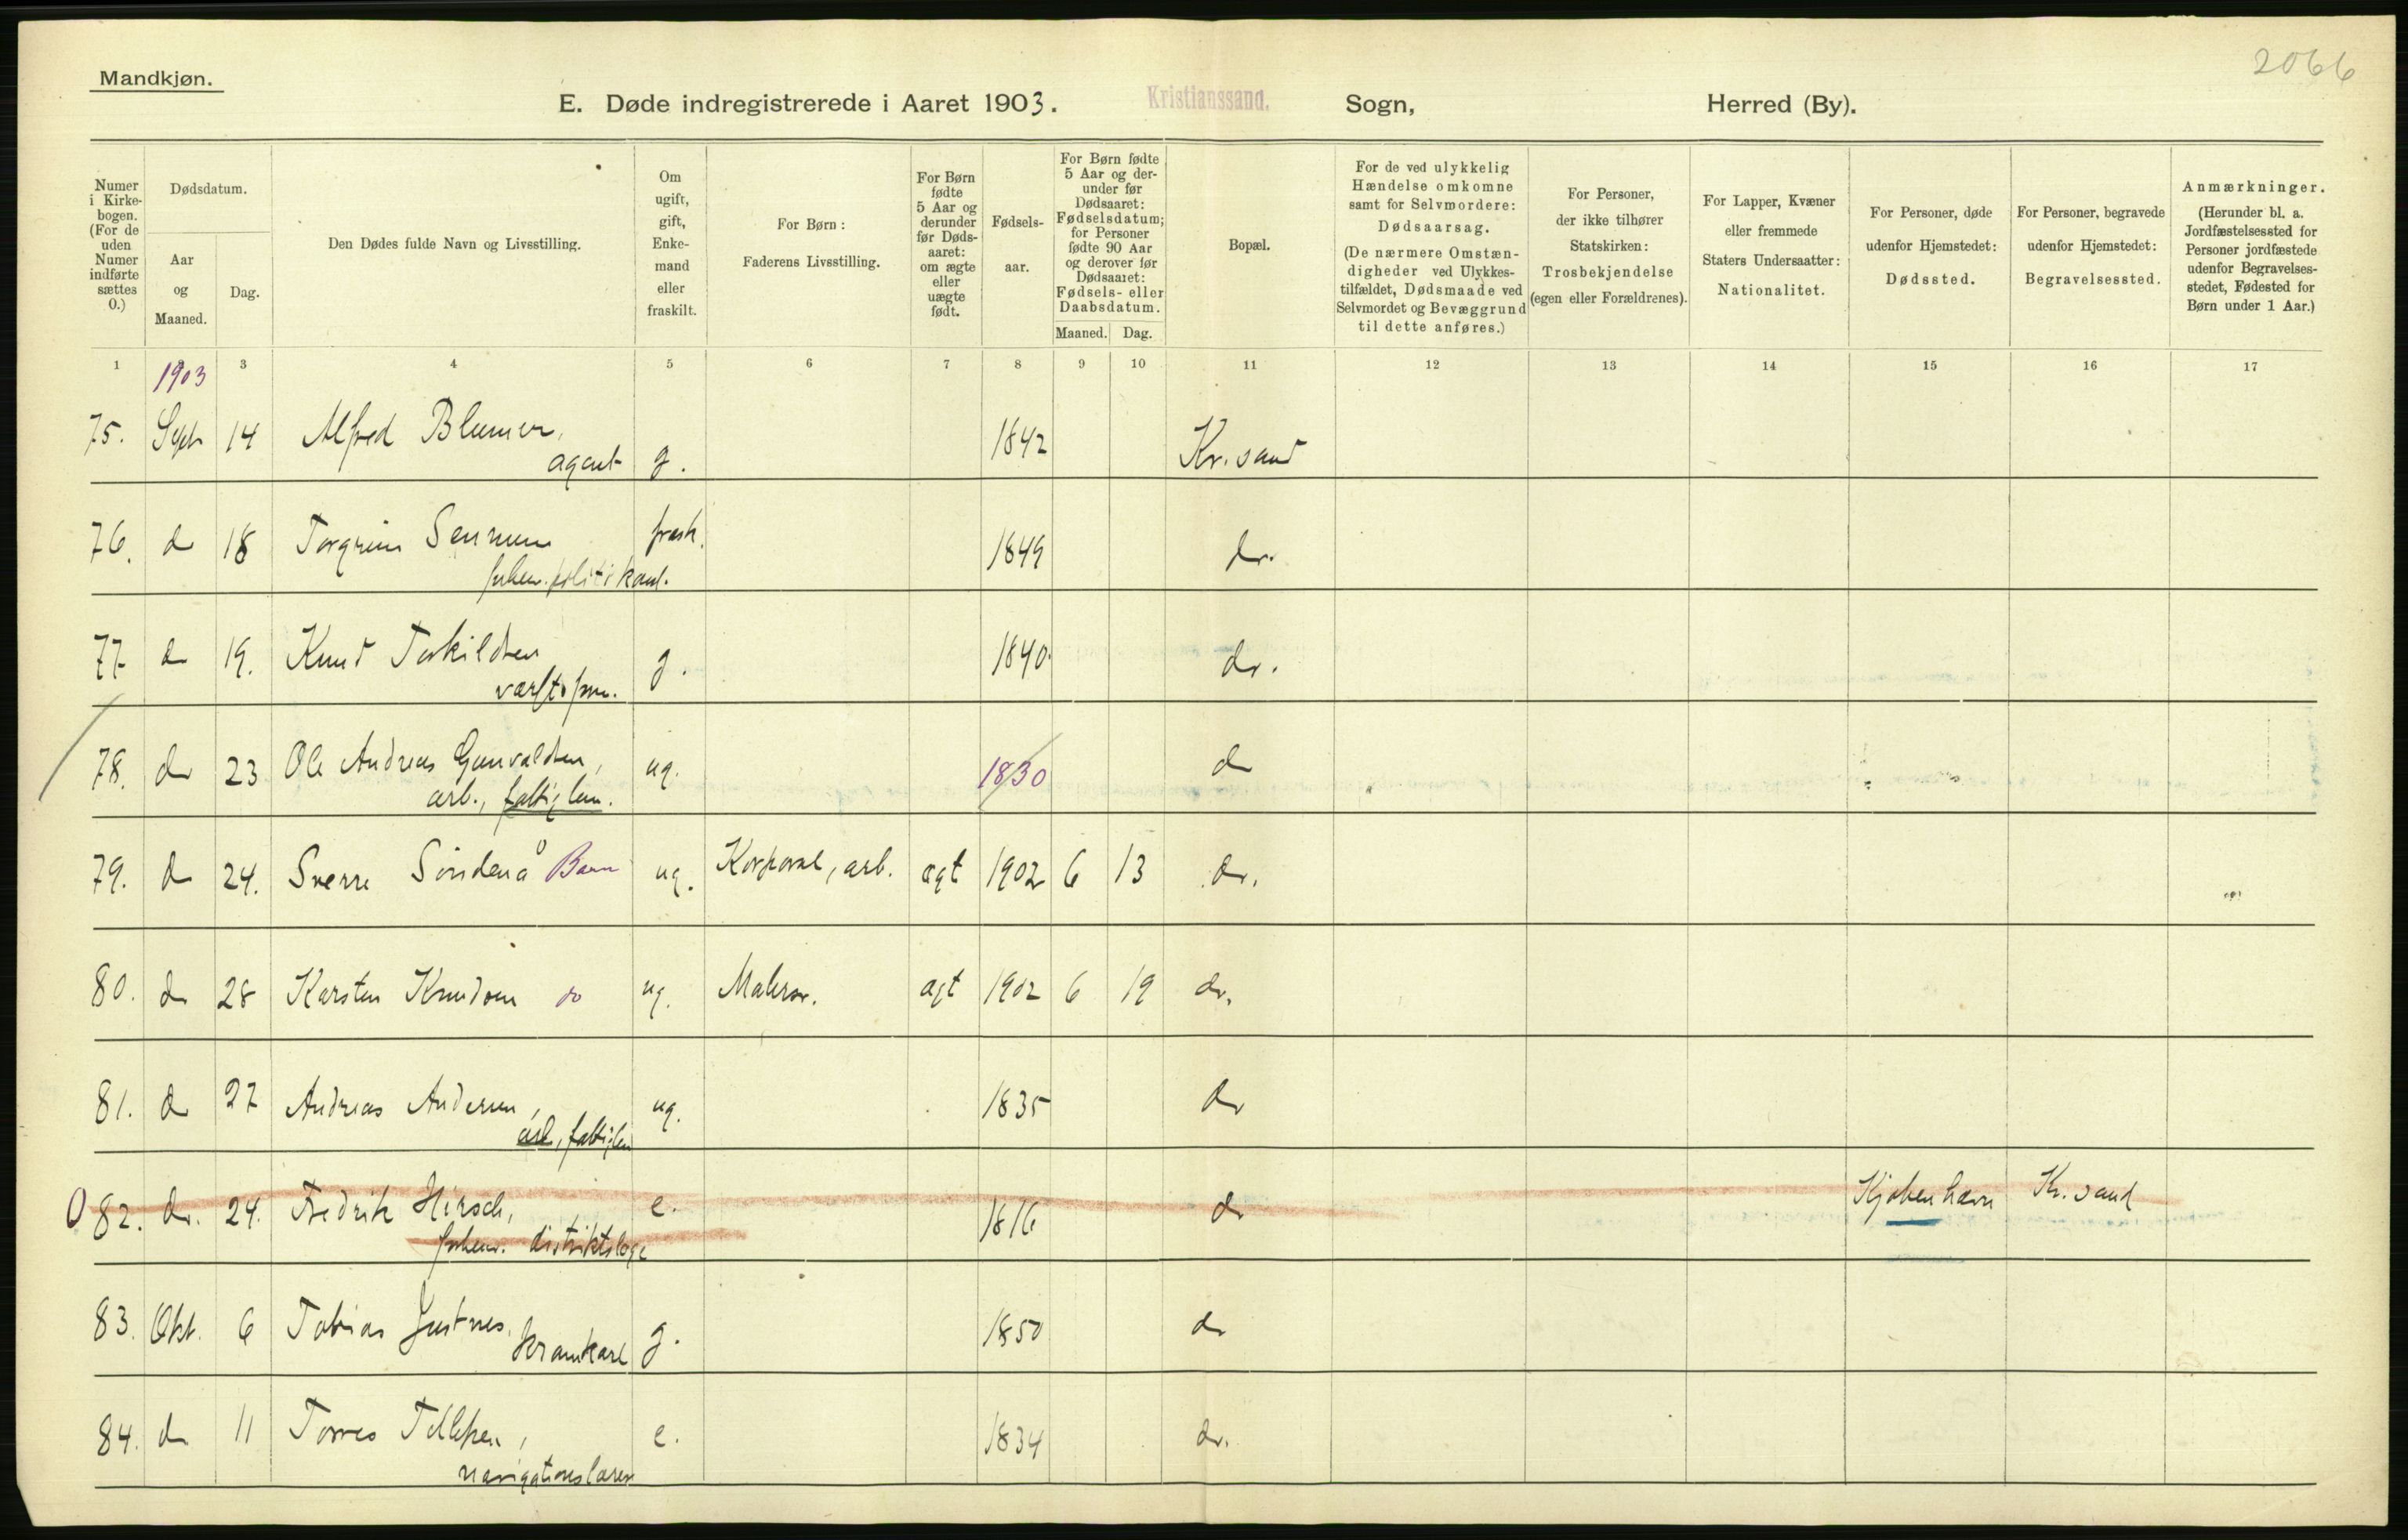 2066
Mandkjøn.
E. Døde indregistrerede i Aaret 1903. Kristianssand. Sogn, Herred (By).
Numer i Kirkebogen. (For de uden Numer indførte sættes 0.)
Dødsdatum.
Aar og Maaned.
Dag.
Den Dødes fulde Navn og Livsstilling.
Om ugift, gift, Enkemand eller fraskilt.
For Børn:
Faderens Livsstilling.
For Børn fødte 5 Aar og derunder før Dødsaaret: om ægte eller uægte født.
Fødselsaar.
For Børn fødte 5 Aar og derunder før Dødsaaret: Fødselsdatum; for Personer fødte 90 Aar og derover før Dødsaaret: Fødsels- eller Daabsdatum.
Maaned. Dag.
Bopæl.
For de ved ulykkelig Hændelse omkomne samt for Selvmordere:
Dødsaarsag.
(De nærmere Omstændigheder ved Ulykkestilfældet, Dødsmaade ved Selvmordet og Bevæggrund til dette anføres.)
For Personer, der ikke tilhører Statskirken:
Trosbekjendelse
(egen eller Forældrenes).
For Lapper, Kvæner eller fremmede Staters Undersaatter:
Nationalitet.
For Personer, døde udenfor Hjemstedet:
Dødssted.
For Personer, begravede udenfor Hjemstedet:
Begravelsessted.
Anmærkninger.
(Herunder bl. a. Jordfæstelsessted for Personer jordfæstede udenfor Begravelsesstedet, Fødested for Børn under 1 Aar.)
1 1903 3 4 5 6 7 8 9 10 11 12 13 14 15 16 17
75. Sept 14 Alfred Blumer, 1842 Kr.sand
agent g.
76. do 18 Torgrim Sennum frask. 1849 do.
forhen. politikonst.
77 do 19. Knud Torkildsen g. 1840 do.
værftsfm.
78. do 23 Ole Andreas Gunvaldsen, ug. 1830 do
arb., fattiglem.
79. do 24. Sverre Sindenå Barn ug. Korporal, arb. ægt 1902 6 13 do.
80. do 28 Karsten Knudsen do ug. Malersv. ægt 1902 6 19 do.
81. do 27 Andreas Andersen, ug. 1835 do
arb, fattiglem
0 82. do. 24. Fredrik Hirsch, e. 1816 do Kjøbenhavn Kr.sand
forhenv. distriktslæge
83. Okt. 6 Tobias Justnes, g. 1850 do
krankarl
84. do 11 Torres Tellefsen, e. 1834 do.
navigationslærer